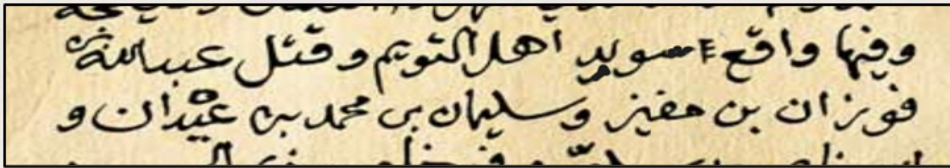 وفيها واقع سويد اهل التويم وقتل عبدالله
فوزان بن مفيز وسليمان بن محمد بن عيدان و